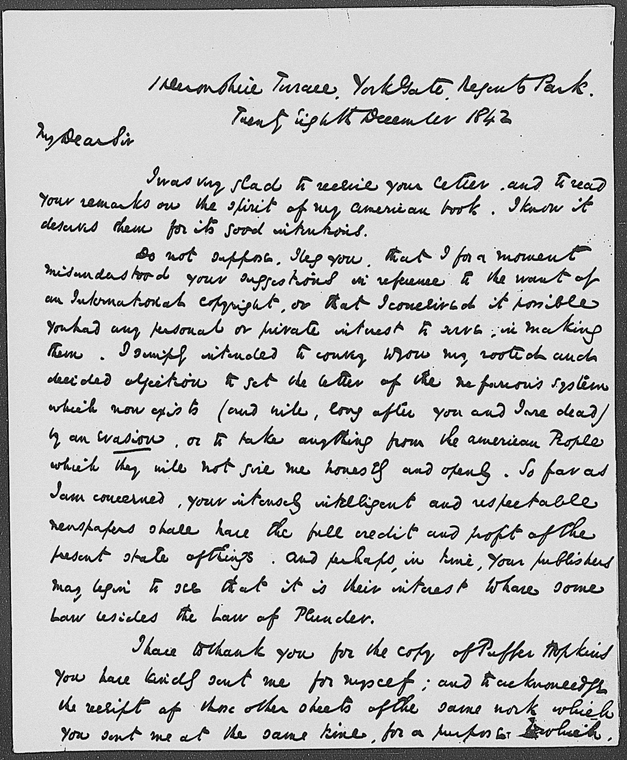 1 Devonshire Terrace, York Gate, Regents Park.
Twenty Eighth December 1842
My Dear Sir
I was very glad to receive your letter, and to read
your remarks on the spirit of my American book. I know it
deserves them for its good intentions.
Do not suppose, I beg you, that I for a moment
misunderstood your suggestions in reference to the want of
an International copyright, or that I conceived it possible
you had any personal or private interest to serve, in making
them. I simply intended to convey to you my rooted and
decided objection to get the better of the nefarious system
which now exists (and will, long after you and I are dead)
by an evasion, or to take anything from the American People
which they will not give me honestly and openly. So far as
I am concerned, your intensely intelligent and respectable
newspapers shall have the full credit and profit of the
present state of things. And perhaps, in time, your publishers
may begin to see that it is their interest to have some
Law besides the Law of Plunder.
I have to thank you for the copy of Puffer Hopkins
you have kindly sent me for myself; and to acknowledge
the receipt of those other sheets of the same work which
you sent me at the same time, for a purpose which,